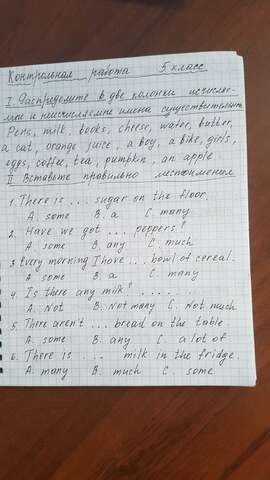 Контрольная работа 5 класс.
I. Распределите в две колонки исчисляе-
мые и неисчисляемые имена существительн
Pens, milk, books, cheese, water, butter,
a cat, orange juice, a boy, a bike, girls,
eggs, coffee, tea, pumpkin, an apple
II. Вставьте правильно местоимения.
1. There is ... sugar on the floor.
A. some B. a C. many
2. Have we got ... peppers?
A. some B. any C. much
3. Every morning I have ... bowl of cereal.
A. some B. a C. many
4. Is there any milk? ......
A. Not B. Not many C. Not much
5. There aren't ... bread on the table.
A. some B. any C. a lot of
6. There is ... milk in the fridge.
A. many B. much C. some